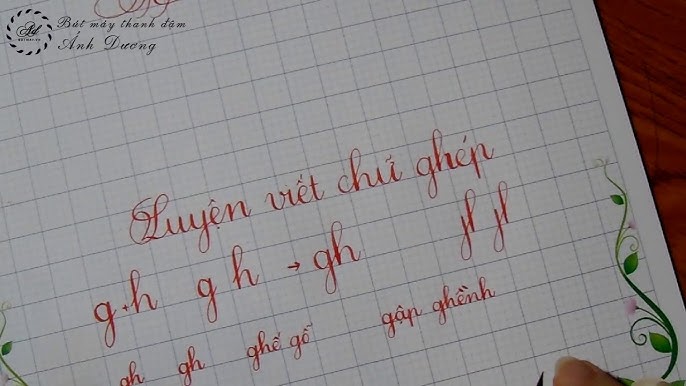 Bút máy thanh đậm
Ánh Dương
Luyện viết chữ ghép
g+h g h → gh
gh gh ghế gỗ gập ghềnh